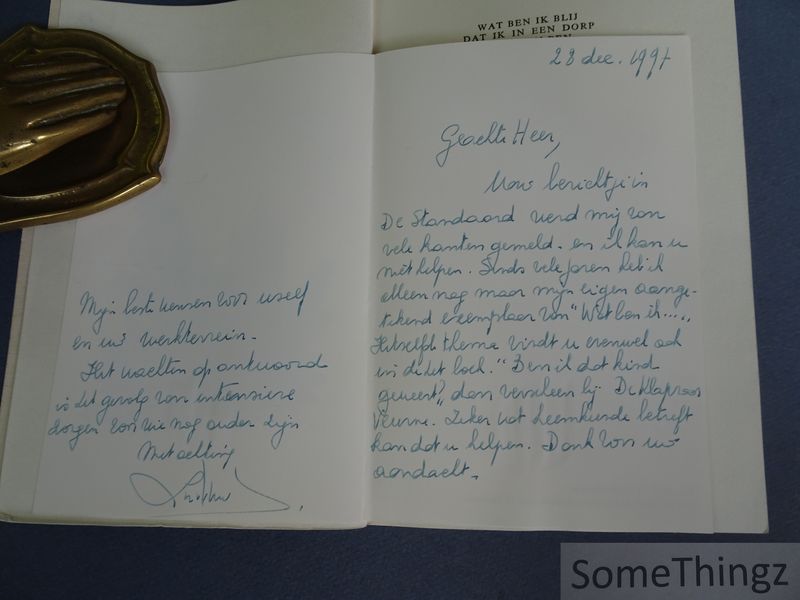 WAT BEN IK BLIJ
DAT IK IN EEN DORP
28 dec. 1997
Geachte Heer,
Uw berichtje in
De Standaard werd mij van
vele kanten gemeld. en ik kan u
niet helpen. Sinds vele jaren heb ik
alleen nog maar mijn eigen aange-
tekend exemplaar van "Wat ben ik.....
Hetzelfde thema vindt u evenwel ook
in dit boek. "Ben ik dat kind
geweest", dan verscheen bij De Klaproos
Veurne. Zeker wat heemkunde betreft
kan dat u helpen. Dank voor uw
aandacht.
Mijn beste wensen voor uzelf
en uw werkterrein.
Het wachten op antwoord
is het gevolg van intensieve
zorgen voor wie nog ouder zijn
Met achting
SomeThingz